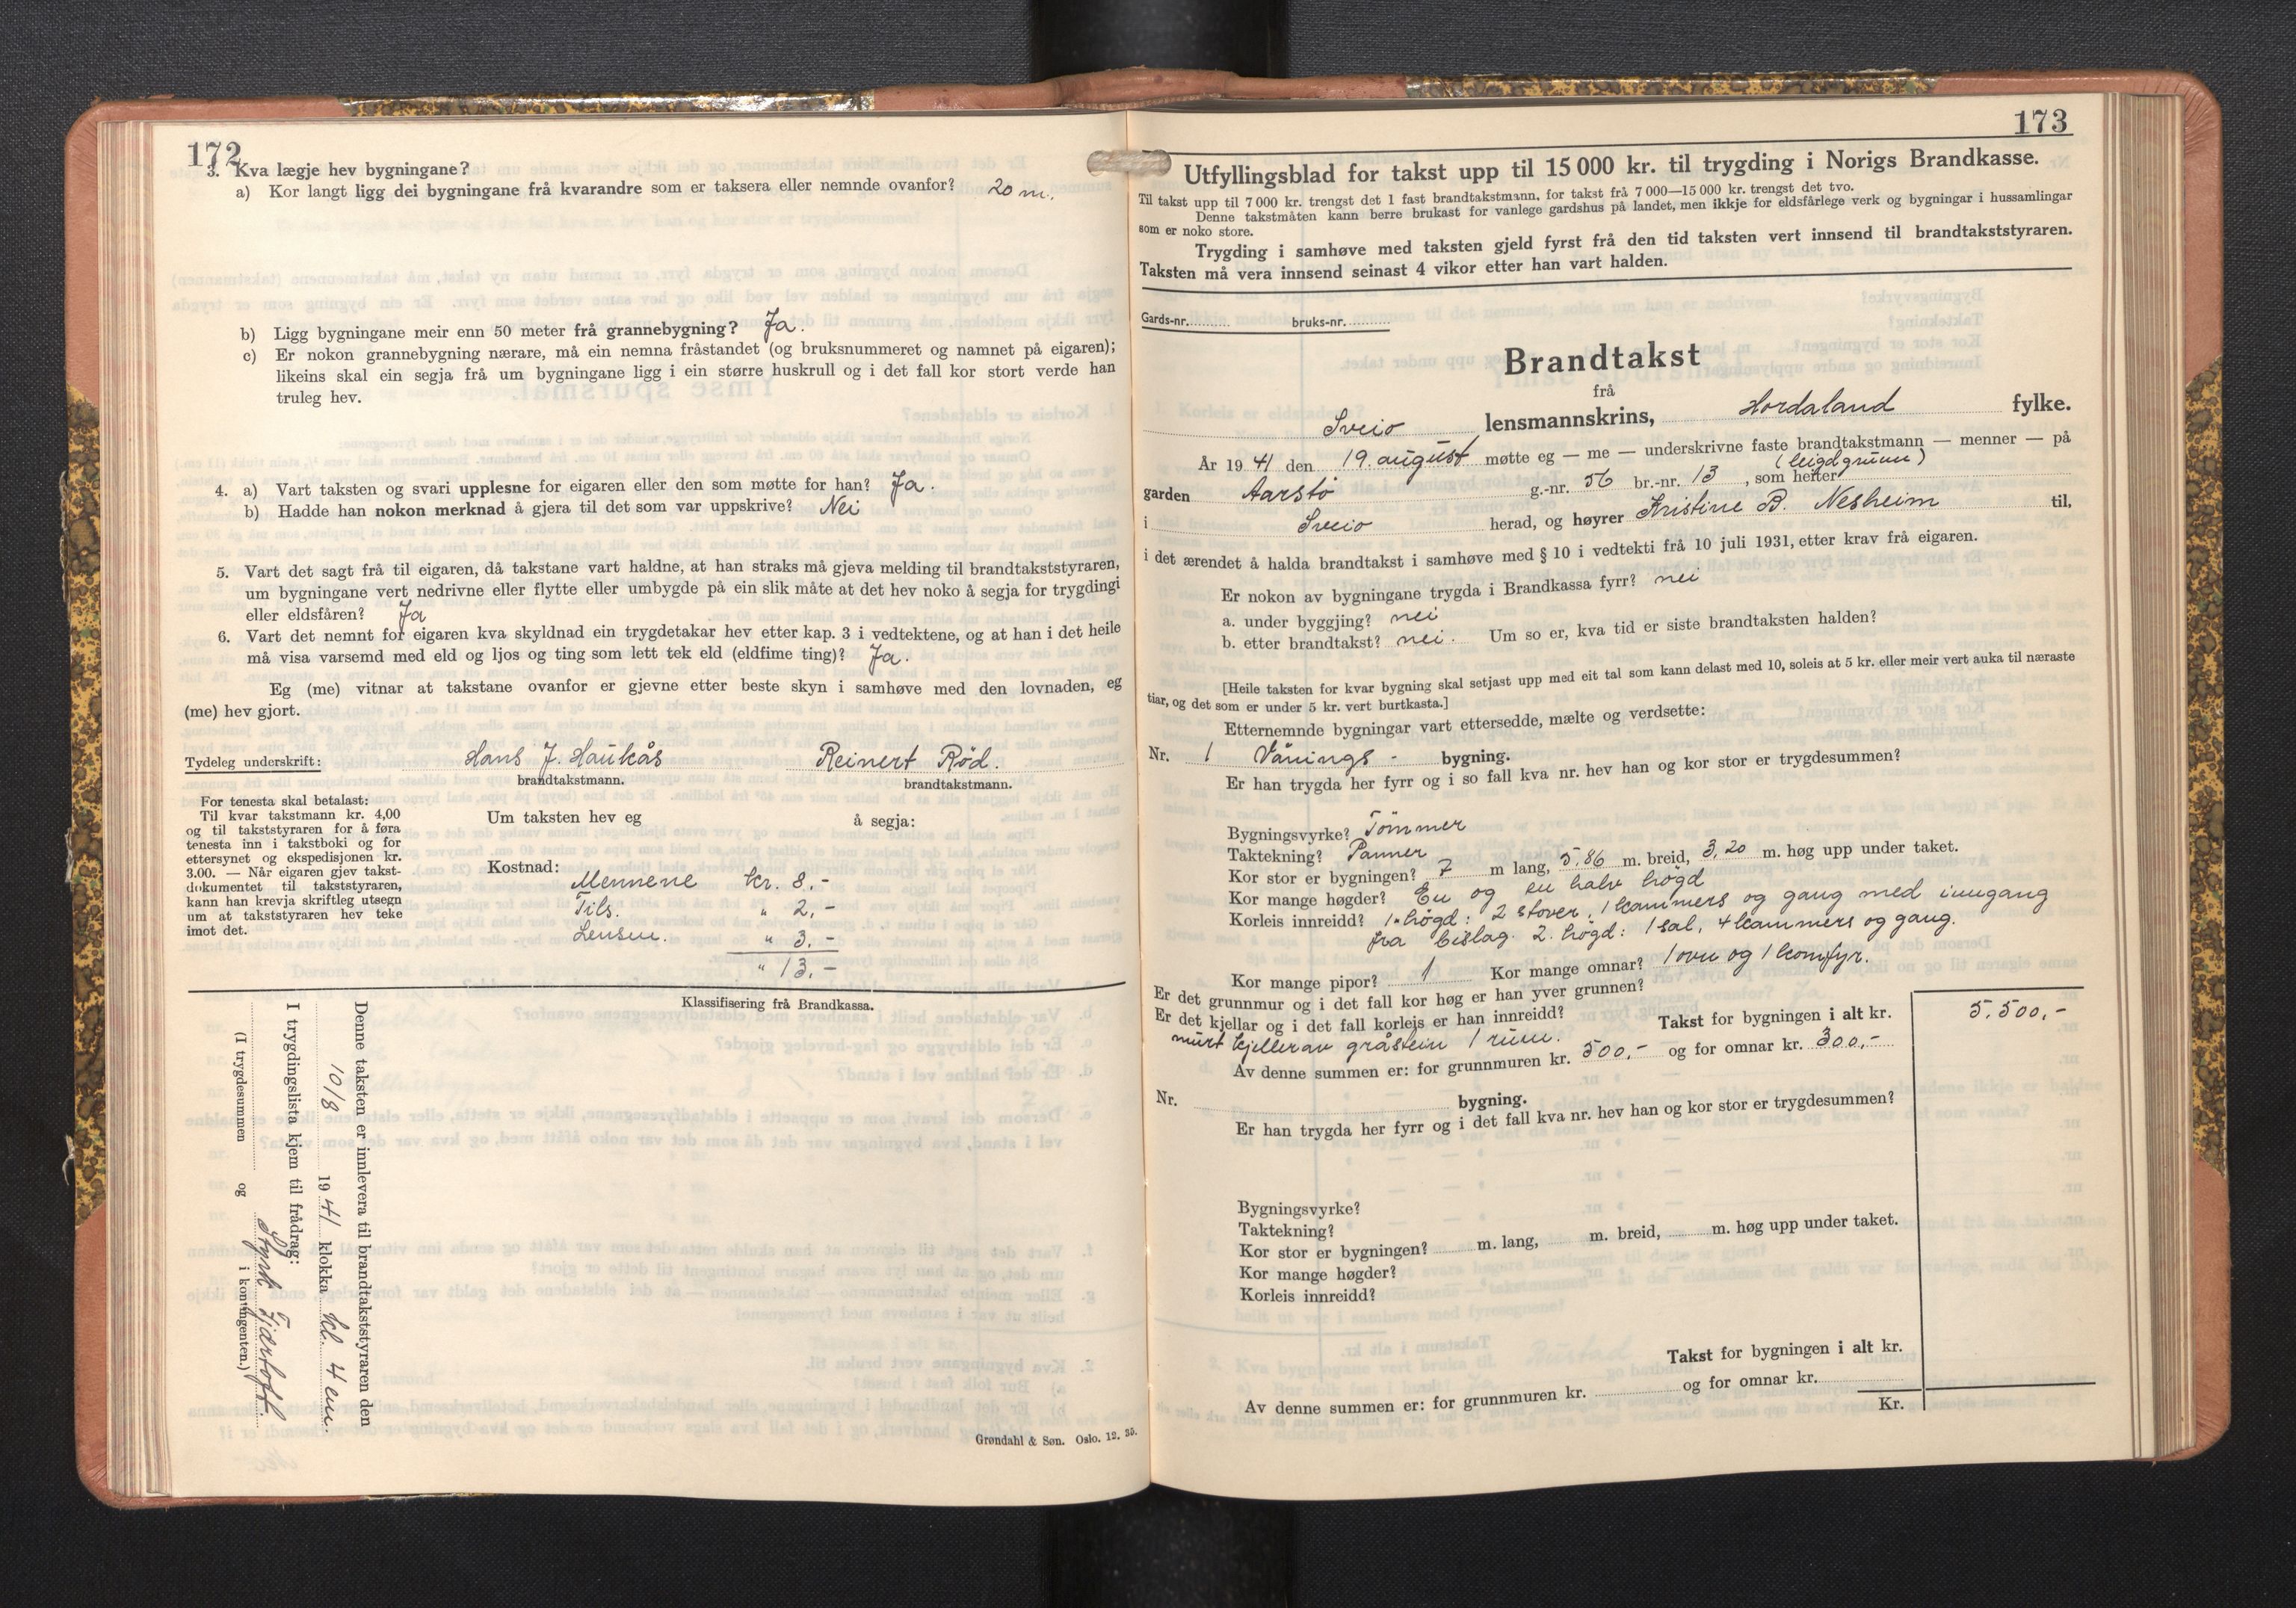 172
3. Kva lægje hev bygningane?
a) Kor langt ligg dei bygningane frå kvarandre som er taksera eller nemnde ovanfor? 20 m.
b) Ligg bygningane meir enn 50 meter frå grannebygning? Ja.
c) Er nokon grannebygning nærare, må ein nemna fråstandet (og bruksnummeret og namnet på eigaren);
likeins skal ein segja frå um bygningane ligg i ein større huskrull og i det fall kor stort verde han
truleg hev.
4. a) Vart taksten og svari upplesne for eigaren eller den som møtte for han? Ja.
b) Hadde han nokon merknad å gjera til det som var uppskrive? Nei
5. Vart det sagt frå til eigaren, då takstane vart haldne, at han straks må gjeva melding til brandtakststyraren,
um bygningane vert nedrivne eller flytte eller umbygde på ein slik måte at det hev noko å segja for trygdingi
eller eldsfåren? Ja
6. Vart det nemnt for eigaren kva skyldnad ein trygdetakar hev etter kap. 3 i vedtektene, og at han i det heile
må visa varsemd med eld og ljos og ting som lett tek eld (eldfime ting)? Ja.
Eg (me) vitnar at takstane ovanfor er gjevne etter beste skyn i samhøve med den lovnaden, eg
(me) hev gjort.
Tydeleg underskrift: Hans J. Haukås Reinert Röd.
brandtakstmann. brandtakstmann.
For tenesta skal betalast:
Til kvar takstmann kr. 4,00
og til takststyraren for å føra
tenesta inn i takstboki og for
ettersynet og ekspedisjonen kr.
3.00. — Når eigaren gjev takst-
dokumentet til takststyraren,
kann han krevja skriftleg utsegn
um at takststyraren hev teke
imot det.
Um taksten hev eg å segja:
Kostnad:
Mennene kr. 8,-
Tils. " 2,-
Lensm. " 3,-
" 13,-
Klassifisering frå Brandkassa.
Denne taksten er innlevera til brandtakststyraren den
10/8 1941 klokka kl. 4 em.
I trygdingslista kjem til frådrag:
(I trygdesummen og i kontingenten.)
Fjærtoft.
Grøndahl & Søn. Oslo. 12. 35.
173
Utfyllingsblad for takst upp til 15 000 kr. til trygding i Norigs Brandkasse.
Til takst upp til 7 000 kr. trengst det 1 fast brandtakstmann, for takst frå 7 000—15 000 kr. trengst det tvo.
Denne takstmåten kann berre brukast for vanlege gardshus på landet, men ikkje for eldsfårlege verk og bygningar i hussamlingar
som er noko store.
Trygding i samhøve med taksten gjeld fyrst frå den tid taksten vert innsend til brandtakststyraren.
Taksten må vera innsend seinast 4 vikor etter han vart halden.
Gards-nr. bruks-nr.
Brandtakst
frå
Sveio lensmannskrins, Hordaland fylke.
År 1941 den 19. august møtte eg — me — underskrivne faste brandtakstmann — menner — på
(leigd grunn)
garden Aarstö g.-nr. 56 br.-nr. 13, som heiter
i Sveio herad, og høyrer Kristine B. Nesheim til,
i det ærendet å halda brandtakst i samhøve med § 10 i vedtekti frå 10 juli 1931, etter krav frå eigaren.
Er nokon av bygningane trygda i Brandkassa fyrr? nei
a. under byggjing? nei
b. etter brandtakst? nei. Um so er, kva tid er siste brandtaksten halden?
[Heile taksten for kvar bygning skal setjast upp med eit tal som kann delast med 10, soleis at 5 kr. eller meir vert auka til næraste
tiar, og det som er under 5 kr. vert burtkasta.]
Etternemnde bygningar vart ettersedde, mælte og verdsette:
Nr. 1 Vånings - bygning.
Er han trygda her fyrr og i so fall kva nr. hev han og kor stor er trygdesummen?
Bygningsvyrke? Tömmer
Taktekning? Panner
Kor stor er bygningen? 7 m lang, 5,86 m. breid, 3,20 m. høg upp under taket.
Kor mange høgder? En og en halv högd
Korleis innreidd? 1. högd: 2 stover, 1 kammers og gang med inngang
fra bislag. 2. högd: 1 sal, 4 kammers og gang.
Kor mange pipor? 1 Kor mange omnar? 1 ovn og 1 komfyr.
Er det grunnmur og i det fall kor høg er han yver grunnen?
Er det kjellar og i det fall korleis er han innreidd? Takst for bygningen i alt kr. 5.500,-
murt kjeller av gråstein 1 rum.
Av denne summen er: for grunnmuren kr. 500,- og for omnar kr. 300,-
Nr. bygning.
Er han trygda her fyrr og i det fall kva nr. hev han og kor stor er trygdesummen?
Bygningsvyrke?
Taktekning?
Kor stor er bygningen? m. lang, m. breid, m. høg upp under taket.
Kor mange høgder?
Korleis innreidd?
Takst for bygningen i alt kr.
Av denne summen er: for grunnmuren kr. og for omnar kr.
Kr.